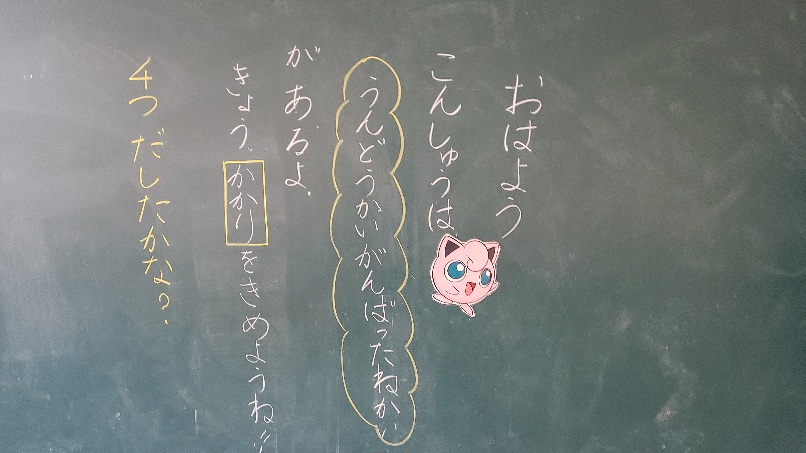 おはよう
こんしゅうは
うんどうかいがんばったねかい
が あるよ.
きょう、かかりをきめようね!!
4つ だしたかな?.